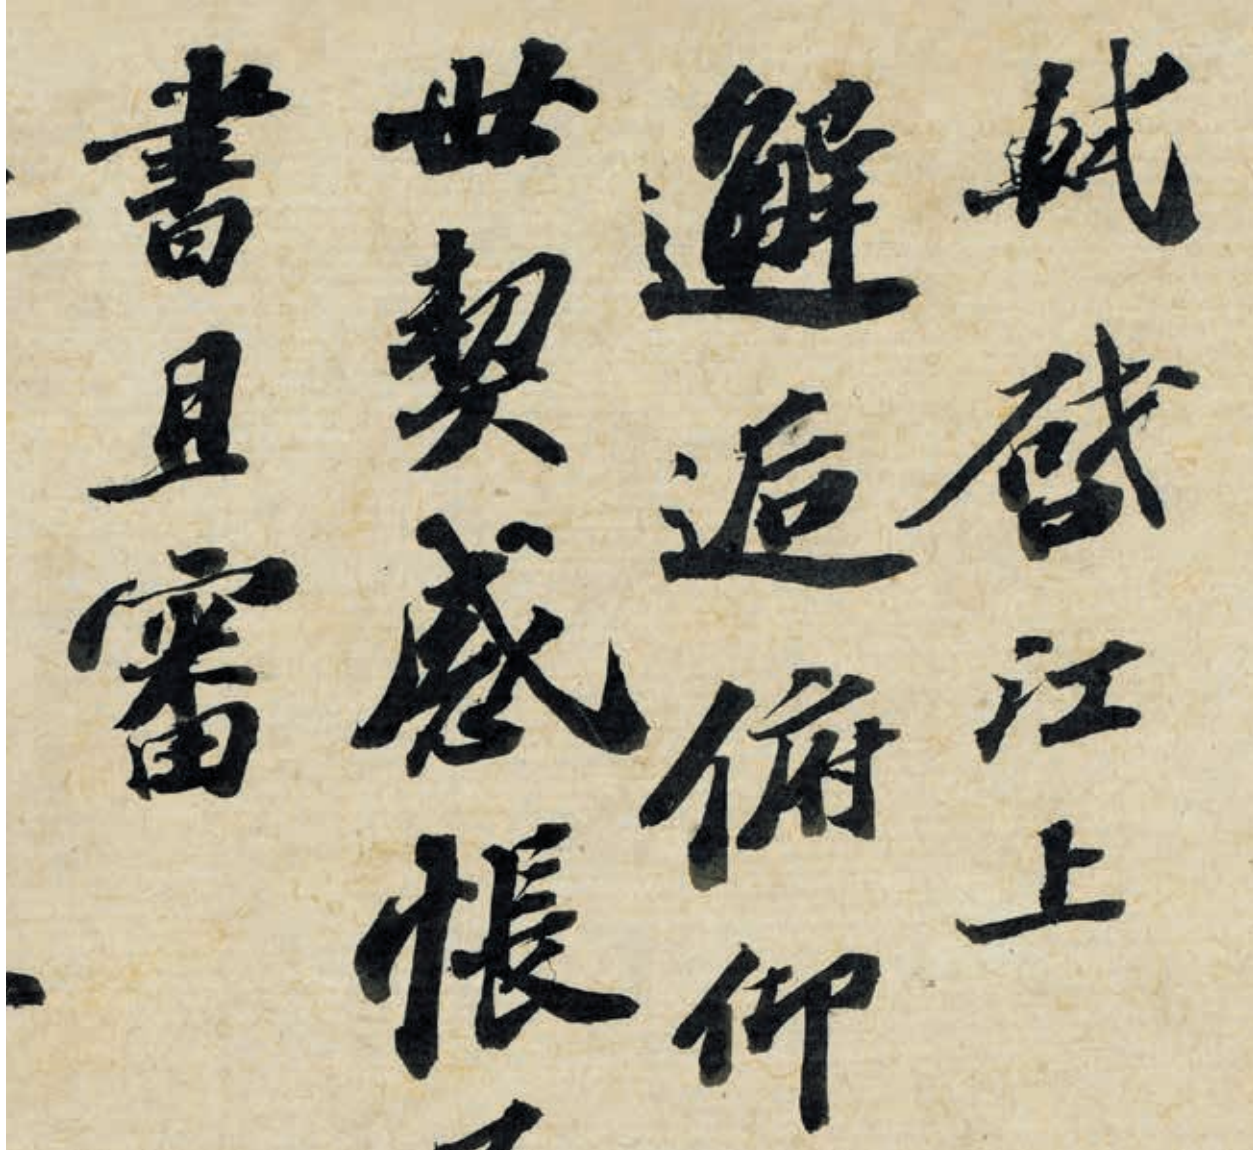 軾啓江上
邂逅俯仰
世契感悵
書且審